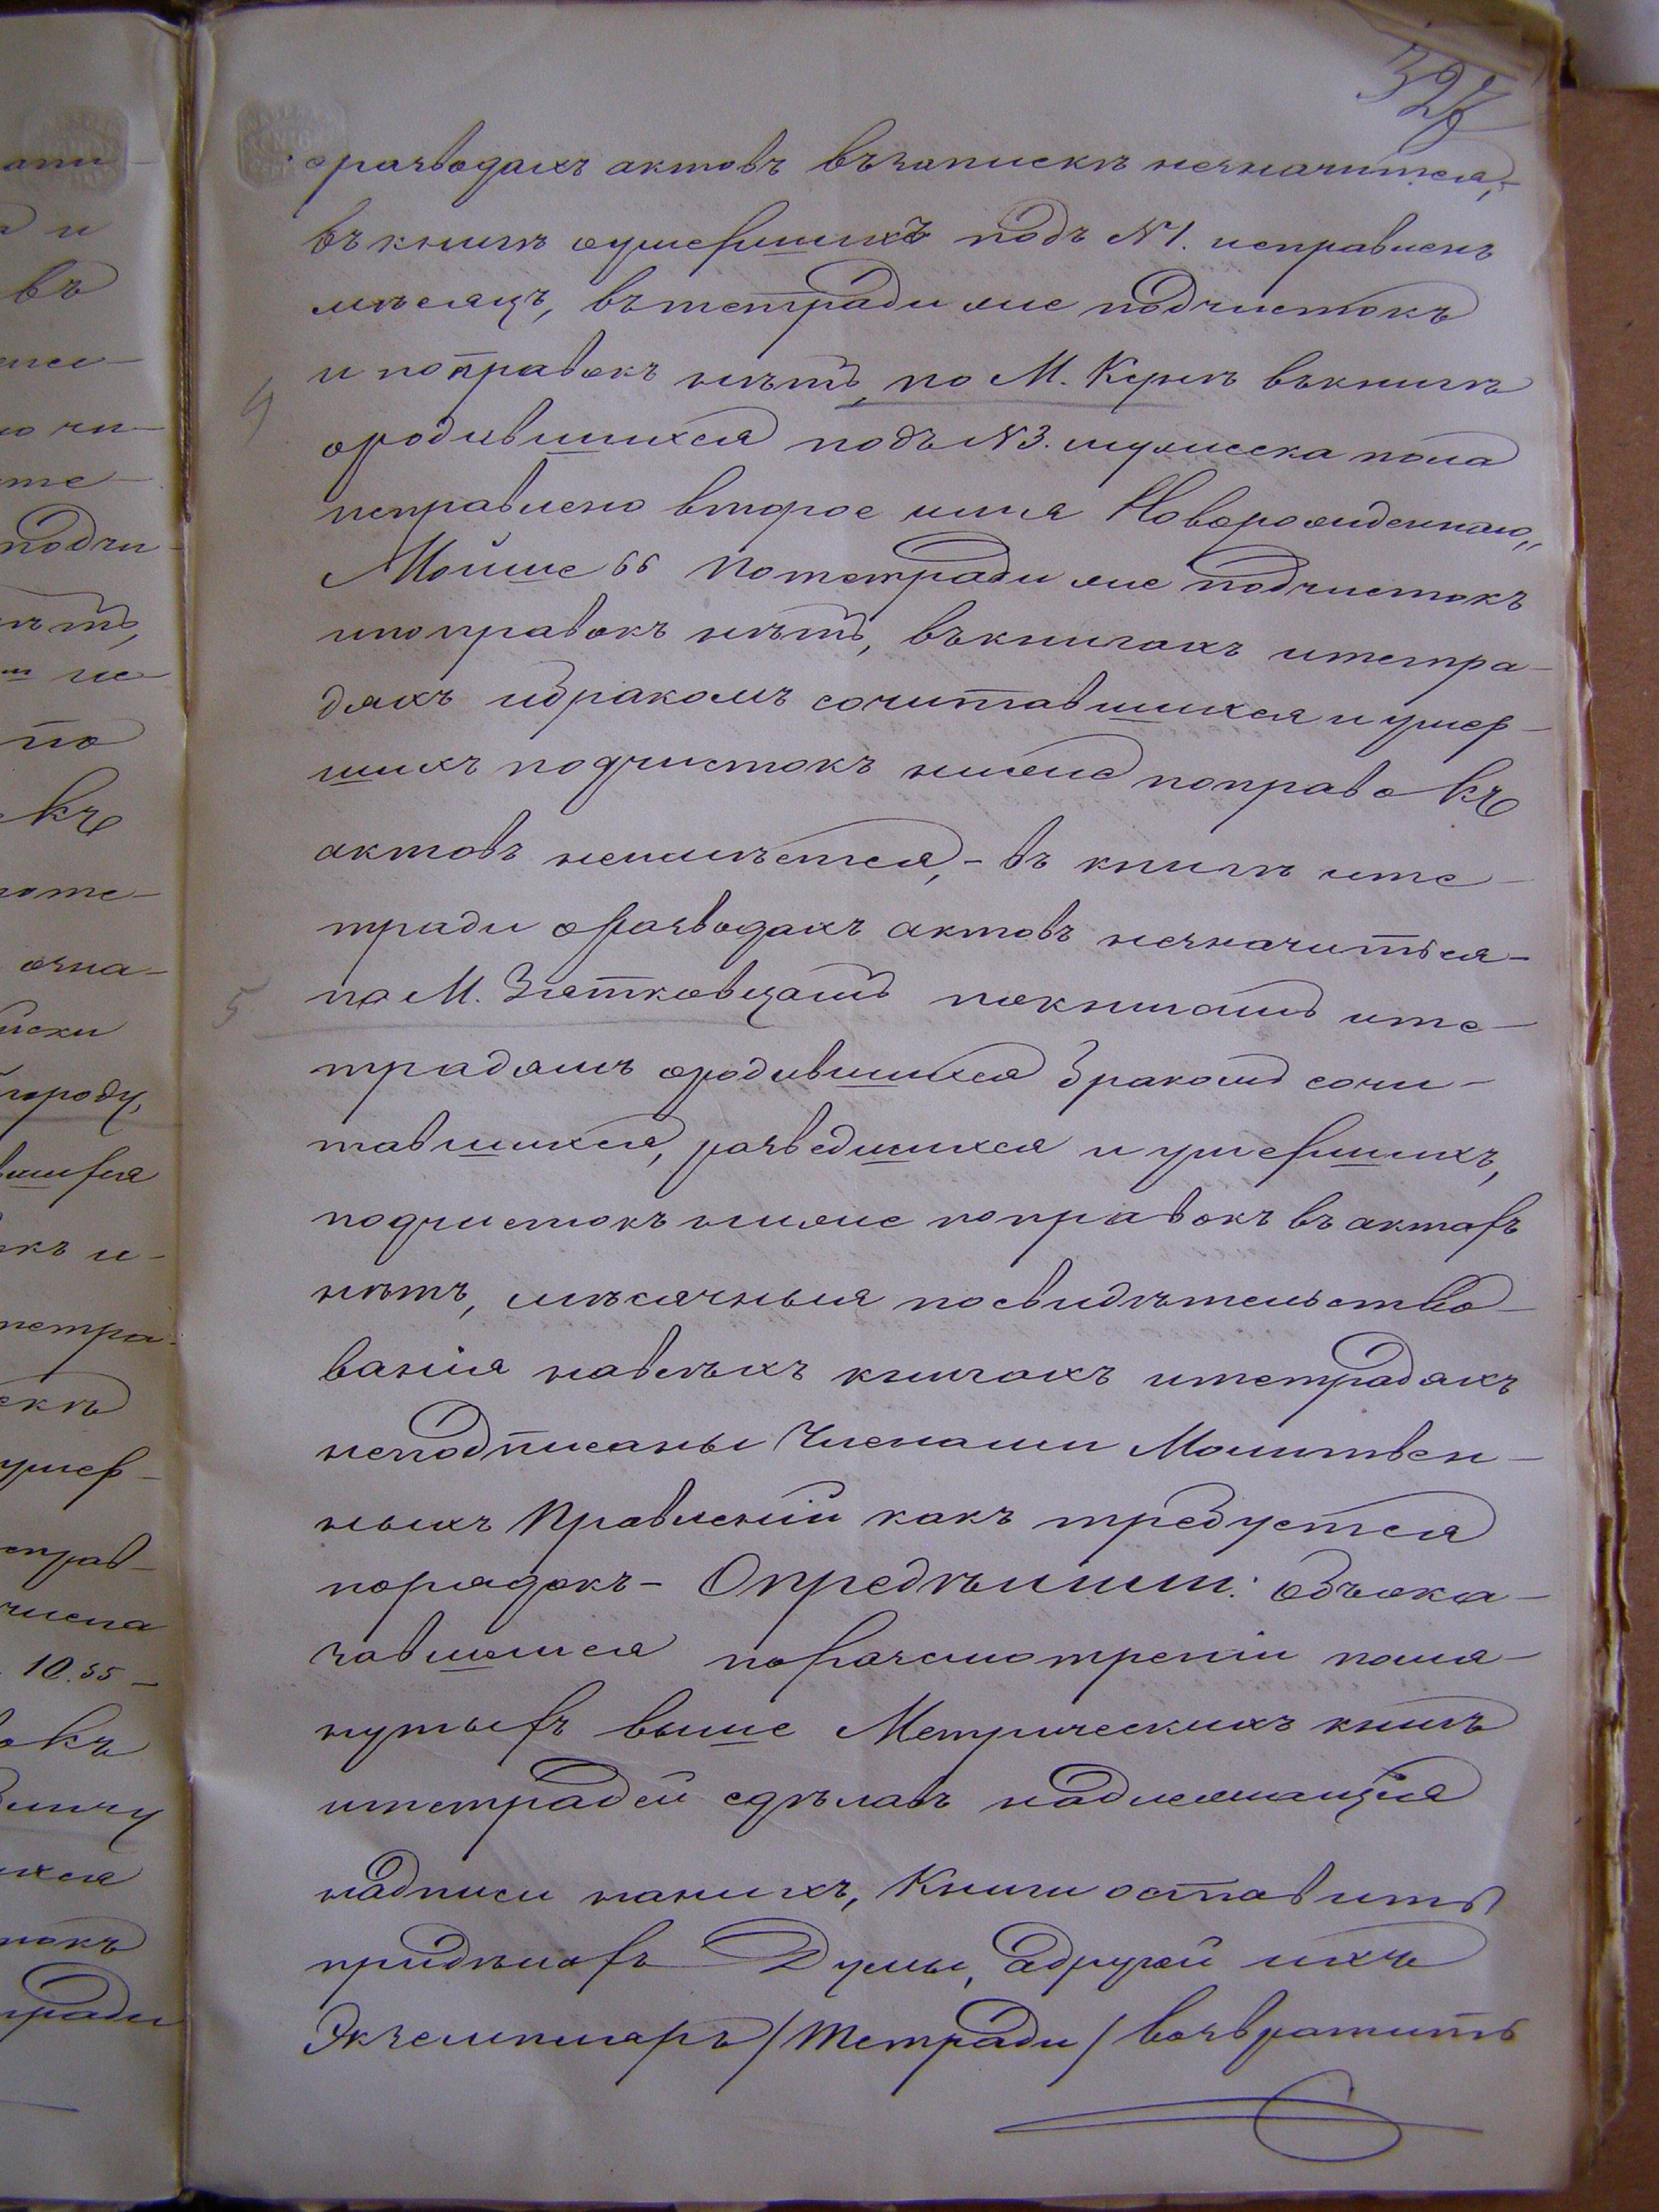 327
оразводахъ актовъ възапискѣ незначится,-
въ книгѣ оумершихъ подъ №1. исправленъ
мѣсяцъ, вътетради же подчистокъ
и поправокъ нѣтъ, по М. Кунѣ въкнигѣ
4
ородившихся подъ №3. мужеска пола
исправлено второе имя Новорожденнаго„
Мойше“ потетради же подчистокъ
ипоправокъ нѣтъ, въкнигахъ итетра-
дяхъ ибракомъ сочитавшихся и умер-
шихъ подчистокъ ниже поправокъ
актовъ неимѣется,- въ книгѣ ите-
тради оразводахъ актовъ незначиться-
5
по М. Златковцамъ покнигамъ ите-
традямъ ородившихся бракомъ сочи-
тавшихся, разведшихся и умершихъ,
подчистокъ ниже поправокъ въ актахъ
нѣтъ, мѣсячныя посвидѣтельство-
ванія навсѣхъ книгахъ итетрадяхъ
неподписаны Членами Молитвен-
ныхъ Правленій какъ требуется
порядокъ- Опредѣлили: объока-
завшемся поразсмотреніи помя-
нутыхъ выше Метрическихъ книгъ
итетрадей сдѣлавъ надлежащія
надписи нанихъ, Книги оставить
придѣлахъ Думы, адругой ихъ
Экземпляръ/Тетради/ возвратить
ати-
и
въ
но чи-
те-
подчи-
нѣтъ,
не
по
къ
поте-
озна-
писки
городу,
вшихся
окъ и-
тетра-
скѣ
умер-
справ-
числа
10.55-
окъ
ихся
токъ
тради